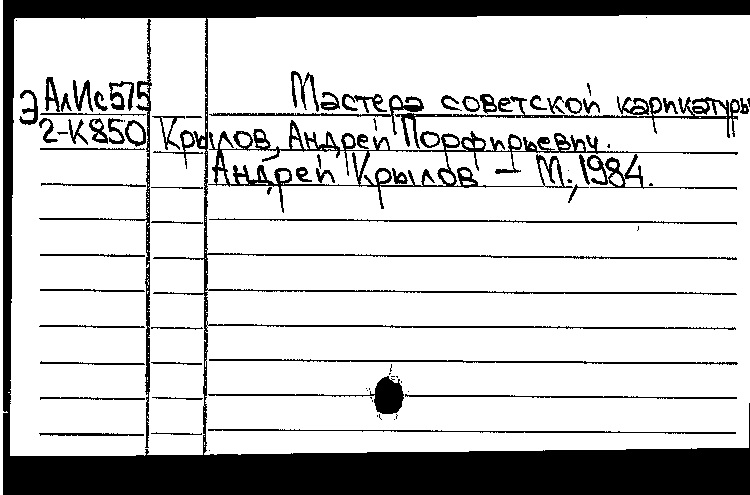 Э АлИс575 Мастера советской карикатуры
2-К850 Крылов, Андрей Порфирьевич.
Андрей Крылов. — М., 1984.